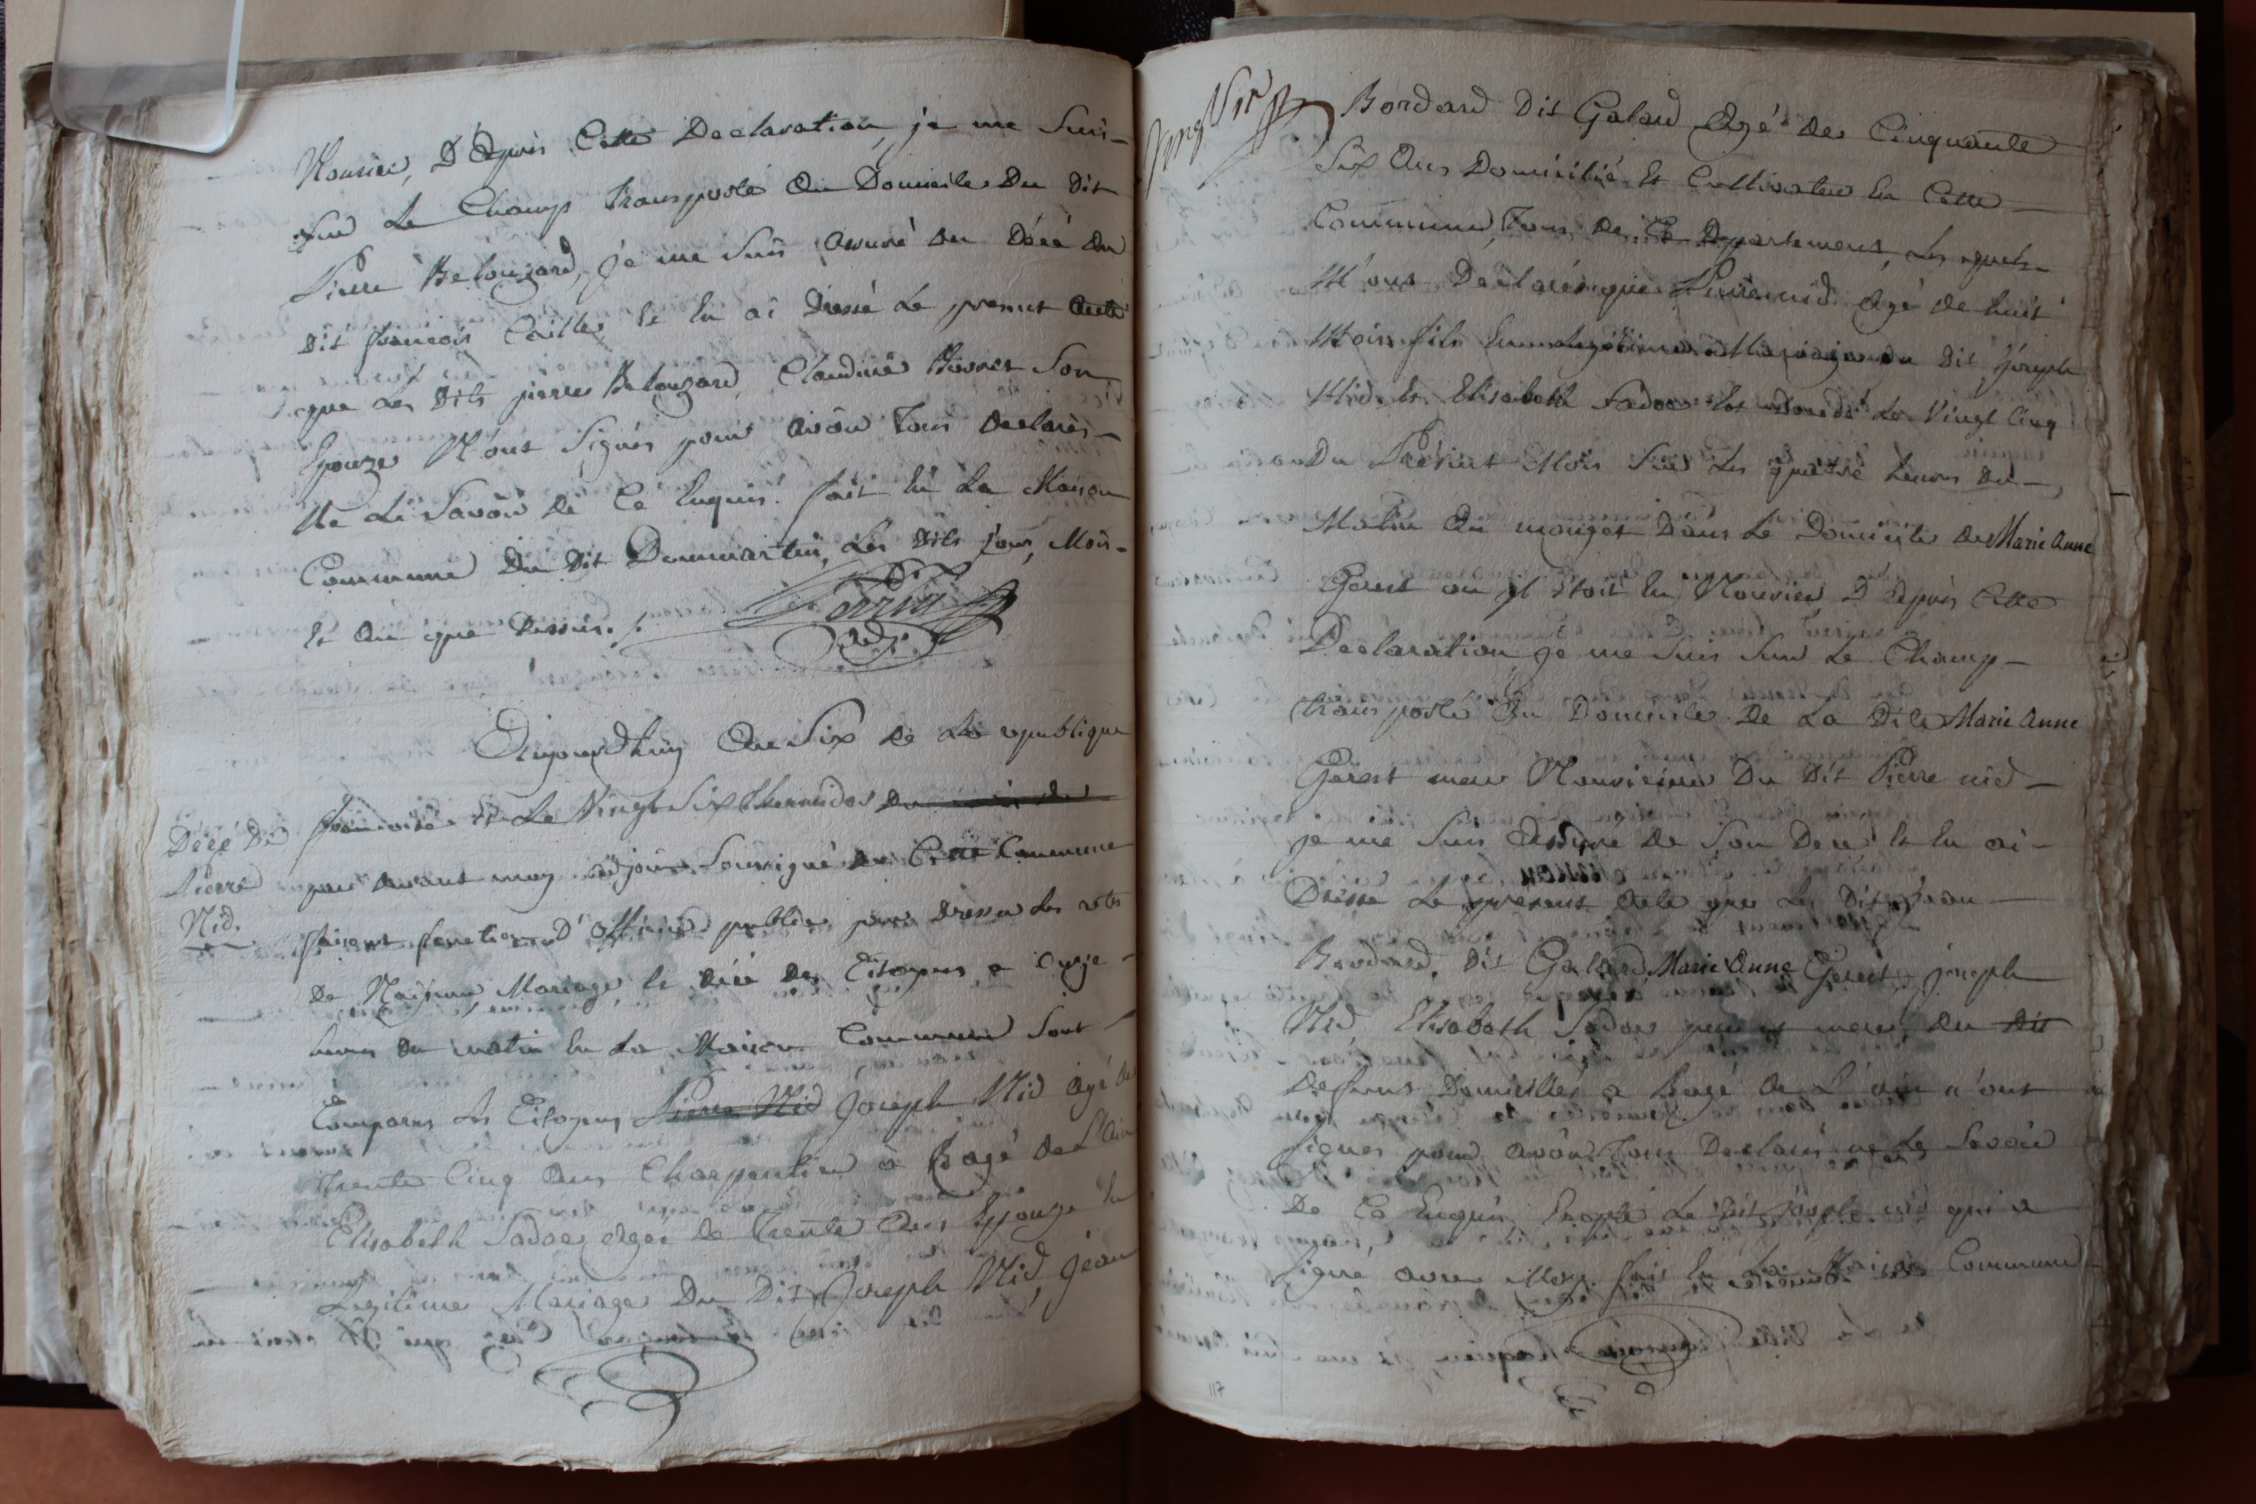 Nourice, D'Apres Cette Declaration, je me Suis
Sur Le Champ transporté Au Domicile Du Dit
Pierre Belouzard, je me Suis assuré du Décé Du
Dit francois Caille, Et En ai Dressé Le present Acte
que les Dits pierre Belouzard, Claudine Son
Epouze N'ont Signés pour avoir tous declarés
Ne Le Savoir de Ce Enquis. fait En La Maison
Commune Du Dit Dommartin, Les Dits jour, Mois
Et An que Dessus./.
Aujourdhuy An Six de La republique
francoise Et Le Vingt Six thermidor
par devant moy adjoint Soussigné de Cette Commune
faisant fonction D'officier public pour Dresser Les actes
De Naissance Mariage Et décé Des Citoyens, a onze
heures du matin En La Maison Commune Sont
Comparus Les Citoyens Pierre Nid Joseph Nid agé de
trente Cinq ans Charpentier à Bagé de L'ain
Elisabeth Sadoe agée de Trente ans Epouze En
Legitime Mariage Du Dit Joseph Nid, jean
Décé De
Pierre
Nid.
Vingt Six
Bordard Dit Galard Agé de Cinquante
Six Ans Domicilié Et Cultivateur En Cette
Commune, Tous de Ce Departement, Les quels
M'ont Declarés que Pierre nid agé de huit
Mois fils En legitime Mariage du Dit Joseph
Nid, Et Elisabeth Sadoe Est Decedé Le Vingt Cinq
Du Present Mois Sur Les quatre heures Du
Matin Au mouget Dans Le Domicile de Marie Anne
Gerest ou il étoit En Nourice, D'Apres Cette
Declaration, je me Suis Sur Le Champ
transporté Au Domicile De La Dite Marie Anne
Gerest mere Nouriciere Du Dit Pierre nid
je me Suis Assuré de Son Decé Et En ai
Dressé Le present Acte que Le Dit jean
Bordard, Dit Galard, Marie Anne Gerest, joseph
Nid Elisabeth Sadoe pere et mere, du Dit
Defunt Domicilies a Bagé de L'ain n'ont
Signés pour avoir Tous Declarés ne Le Savoir
De Ce Enquis, Excepté Le Dit joseph nid qui a
Signé avec Moy. fait En La Maison Commune